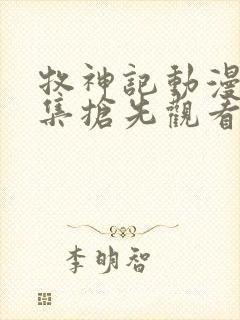 牧神記動漫
集搶先觀看
李明智